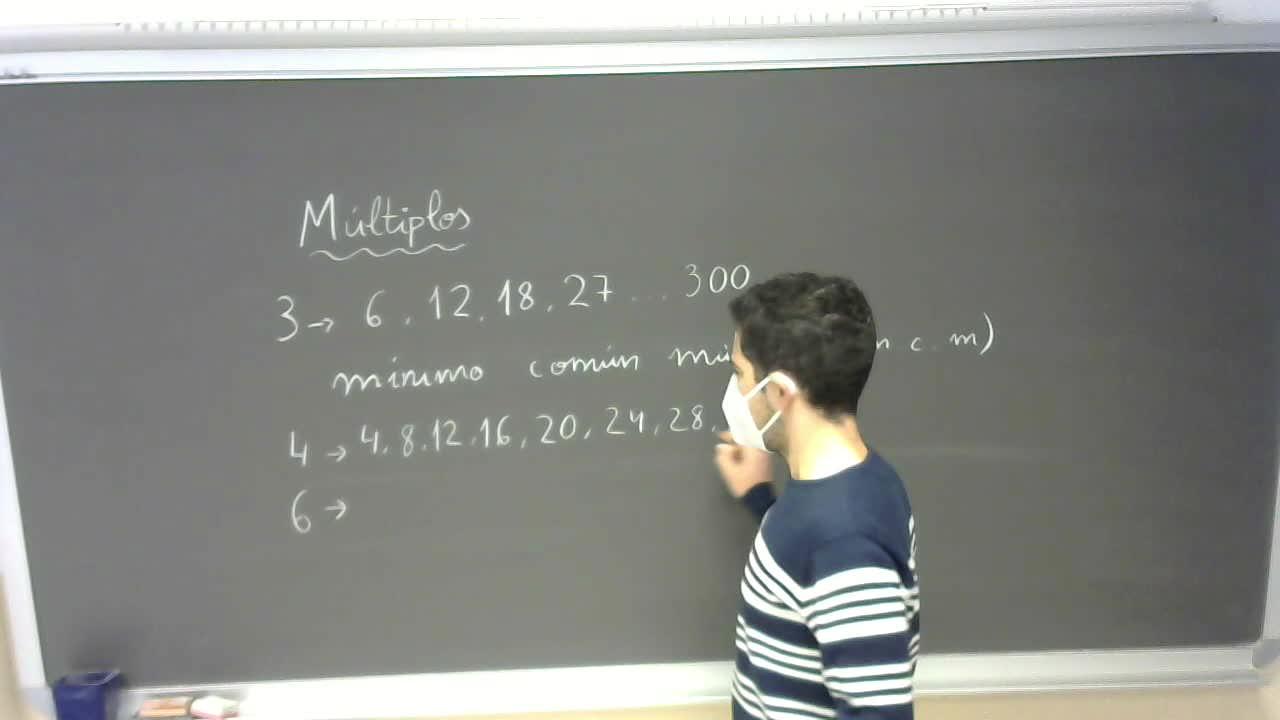 Múltiplos
3 → 6, 12, 18, 27 ... 300
mínimo común c. m)
4 → 4, 8, 12, 16, 20, 24, 28,
6 →